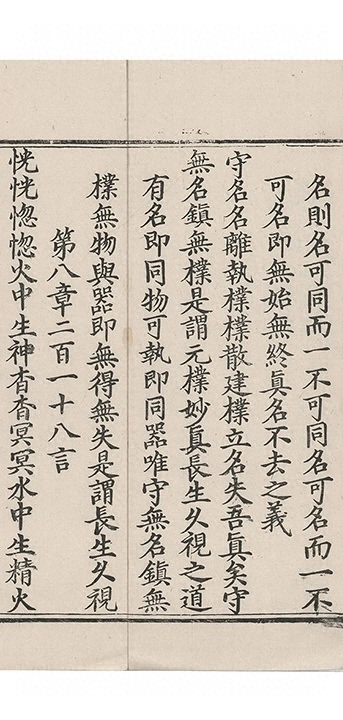 名則名可同而一不可同名可名而一不
可名即無始無終眞名不去之義
守名名離執樸樸散建樸立名失吾眞矣守
無名鎮無樸是謂元樸妙眞長生久視之道
有名即同物可執即同器唯守無名鎮無
樸無物與器即無得無失是謂長生久視
第八章二百一十八言
恍恍惚惚火中生神杳杳冥冥水中生精火